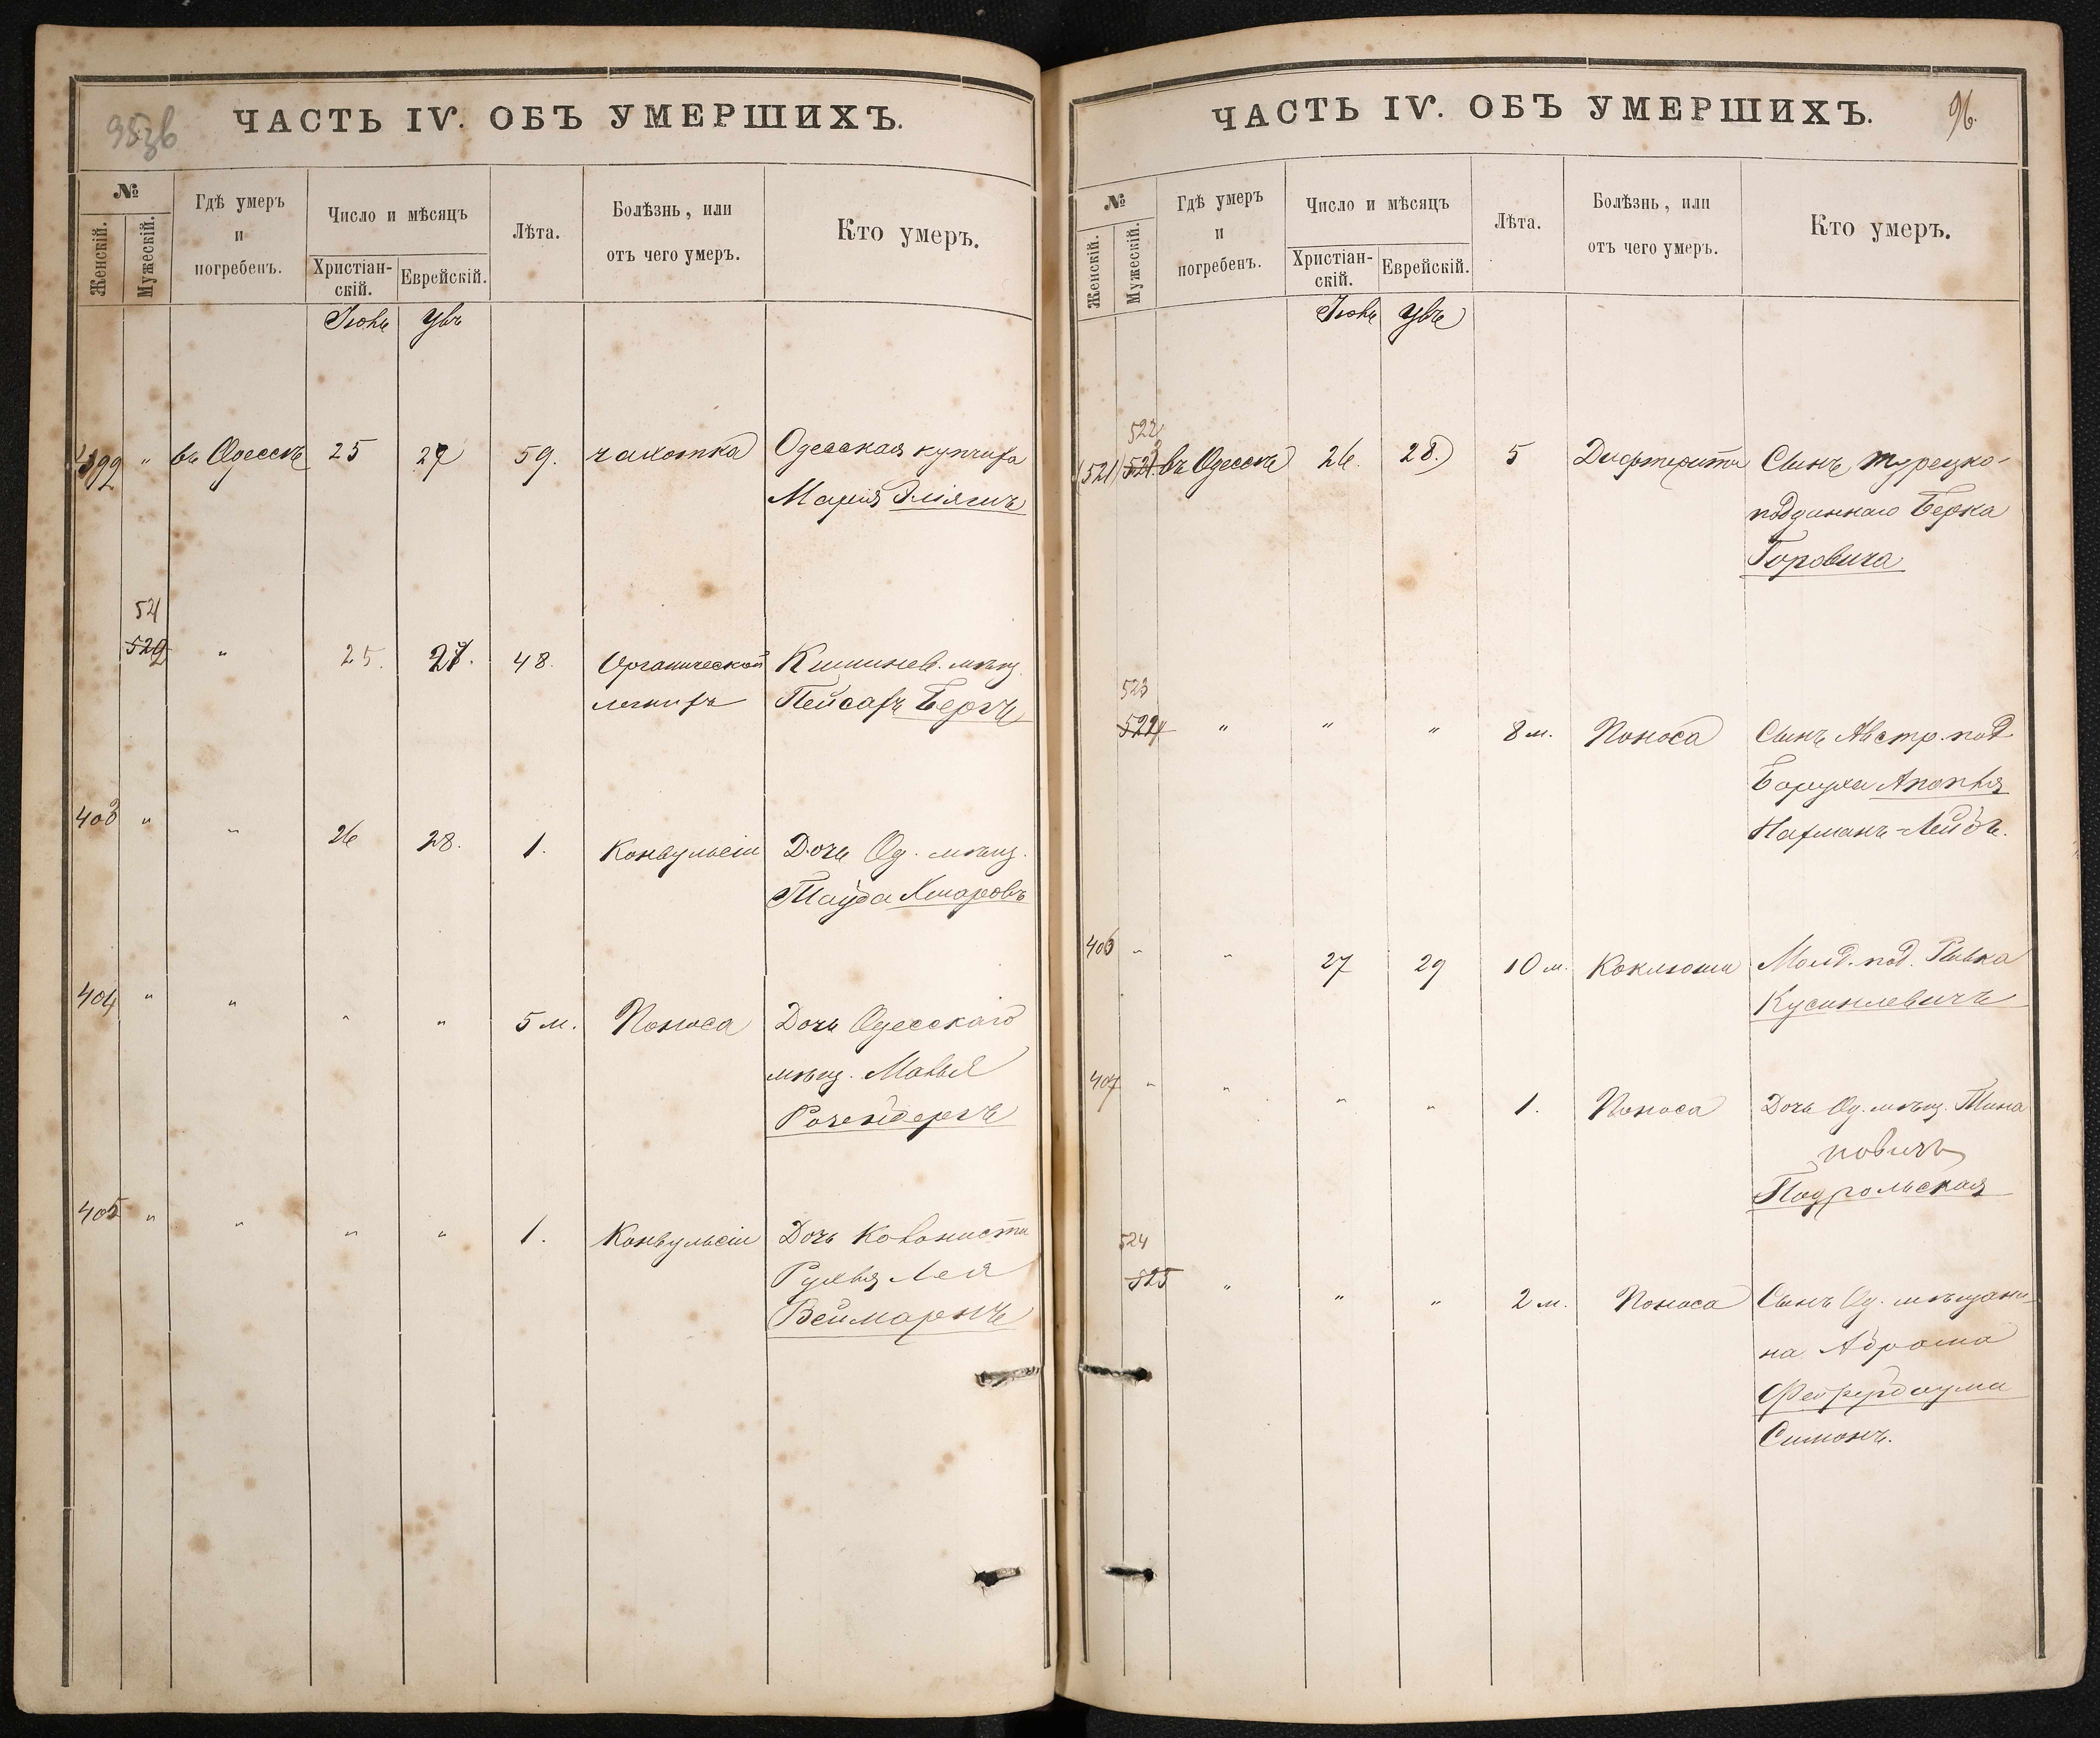 95 зв
ЧАСТЬ IV. ОБЪ УМЕРШИХЪ.
№
Женскій.
Мужескій.
Гдѣ умеръ
и
погребенъ.
Число и мѣсяцъ
Христіан-
скій.
Еврейскій.
Лѣта.
Болѣзнь, или
отъ чего умеръ.
Кто умеръ.
399 " въ Одессѣ 25 27 59. чахотка Одесская купчиха
Марія
521
25. 27. 48. Органической Кишинев. мѣщ.
Пейсахъ Бергъ
403 " " 26 28. 1. Конвульсіи Дочь Од. мѣщ.
Тауба
404 " " " " 5 м. Поноса Дочь Одесскаго
мѣщ. Манья
Розенбергъ
405 " " " " 1. Конвульсіи Дочь Колониста
Рухля Лея
Веймаркъ
ЧАСТЬ IV. ОБЪ УМЕРШИХЪ.
96.
№
Женскій.
Мужескій.
Гдѣ умеръ
и
погребенъ.
Число и мѣсяцъ
Христіан-
скій.
Еврейскій.
Лѣта.
Болѣзнь, или
отъ чего умеръ.
Кто умеръ.
522
(521) въ Одессѣ 26. 28. 5 Дифтерита Сынъ турецко-
подданнаго Берка
Горовича
523
" " " 8 м. Поноса Сынъ Австр. под
Боруха
Нахманъ-Лейбъ.
406 " " 27 29 10 м. Коклюша Молд. под. Ривка
407 " " " " 1. Поноса Дочь Од. мѣщ.
новичъ
524
525 " " " 2 м. Поноса Сынъ Од. мѣщани-
на Абрама
Симонъ.